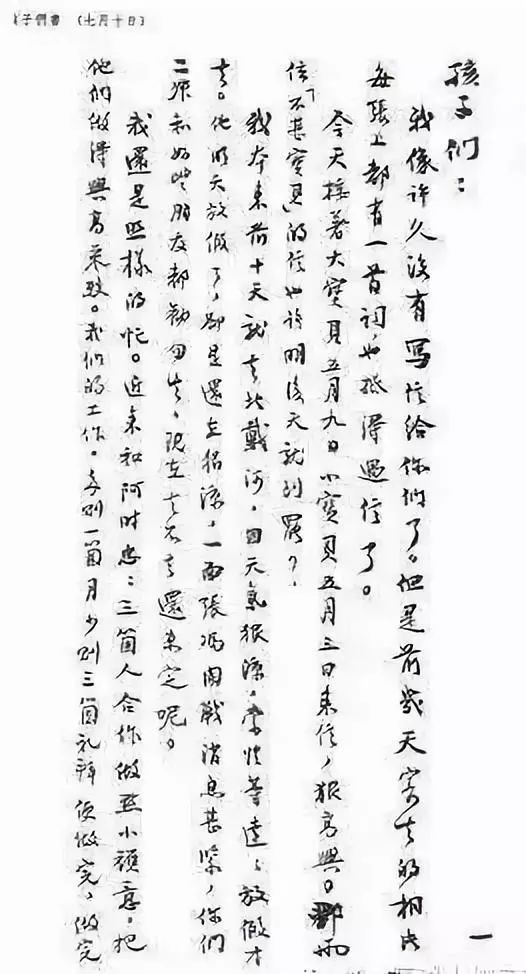 子們書 (七月十日)
孩子們：
我像許久沒有写信給你們了。但是前幾天寄去的相片
每張上都有一首詞，也抵得過信了。
今天接著大寶貝五月九日，小寶貝五月三日來信，狠高興。那兩
位「不甚寶貝」的信，也許明後天就到罷？
我本來前十天就去北戴河，因天氣狠涼，索性等達達放假才
去。他明天放假了，卻是還在很涼，一面張馮開戰消息甚緊，你們
二叔和好些朋友都勸勿去，現在去不去還未定呢。
我還是照樣的忙。近來和阿時忠忠三箇人合作做點小頑意，把
他們做得興高采致。我們的工作，多則一箇月，少則三箇礼拜，便做完，做完
一